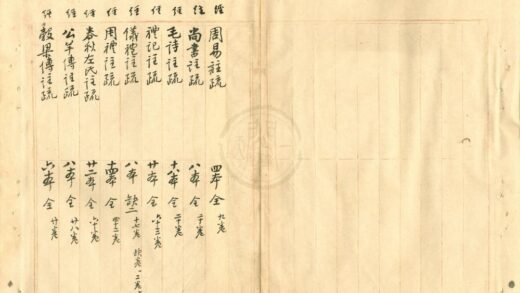 經 周易註疏 四本 全 九卷
經 尚書註疏 八本 全 二十卷
經 毛詩註疏 十八本 全 二十卷
經 禮記註疏 廿本 全 六十三卷
經 儀禮註疏 八本 缺二 十七卷
經 周禮註疏 十四本 全 四十二卷
經 春秋左氏註疏 廿二本 全 六十卷
經 公羊傳註疏 八本 全 廿八卷
經 穀梁傳註疏 六本 全 廿卷